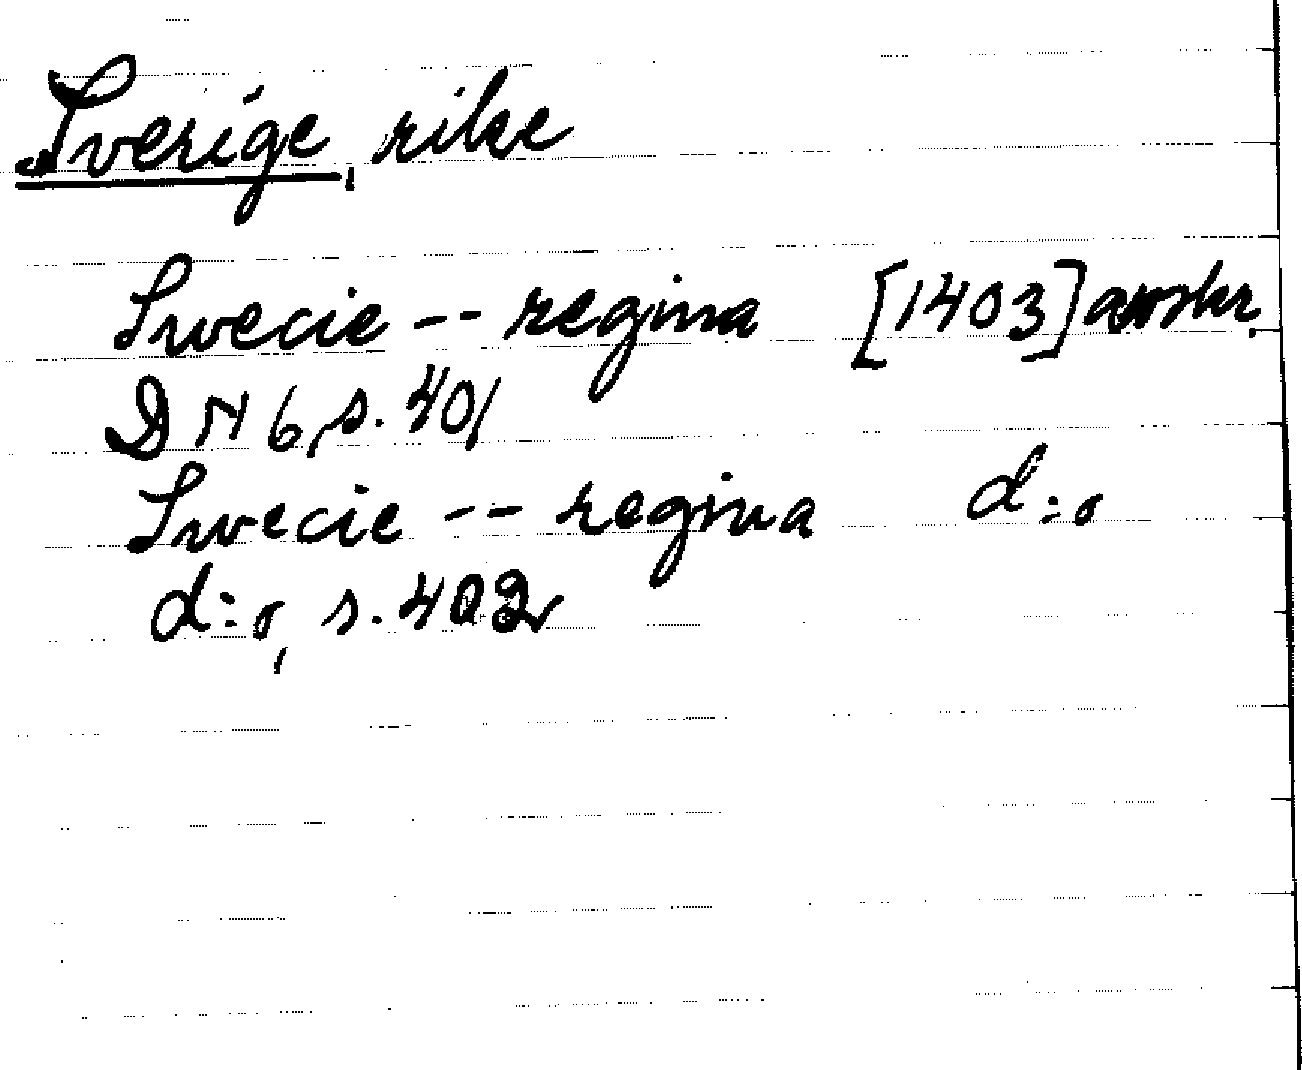 Sverige, rike
Swecie -- regina [1403] avskr.
DN 6, s. 401
Swecie -- regina d:o
d:o, s. 402